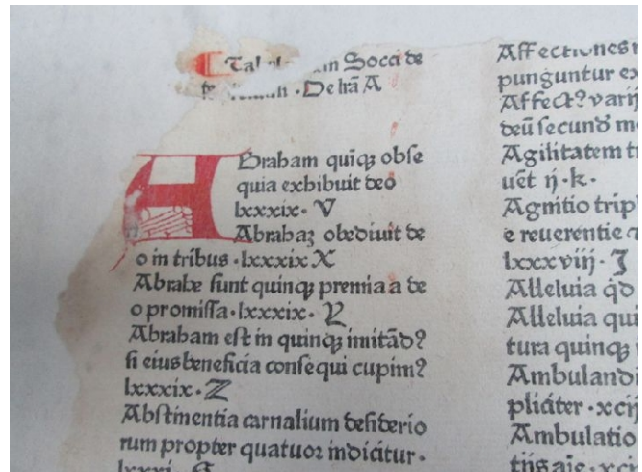 Socci de
De lrā A
Abraham quiqꝫ obse
quia exhibuit deo
lxxxix · V
Abrahaꝫ obediuit de
o in tribus · lxxxix X
Abrahe sunt quinqꝫ premia a de
o promissa · lxxxix · Y
Abraham est in quinqꝫ imitād?
si eius beneficia consequi cupim?
lxxxix · Z
Abstinentia carnalium desiderio
rum propter quatuor indicitur ·
lxxxi · S
Affectiones
punguntur ex
Affect? varij
deū secundū
Agilitatem
uēt ij · k ·
Agnitio
e reuerentie
lxxxviij · J
Alleluia qd
Alleluia qui
tura quinqꝫ
Ambulandi
pliciter · xcij
Ambulatio